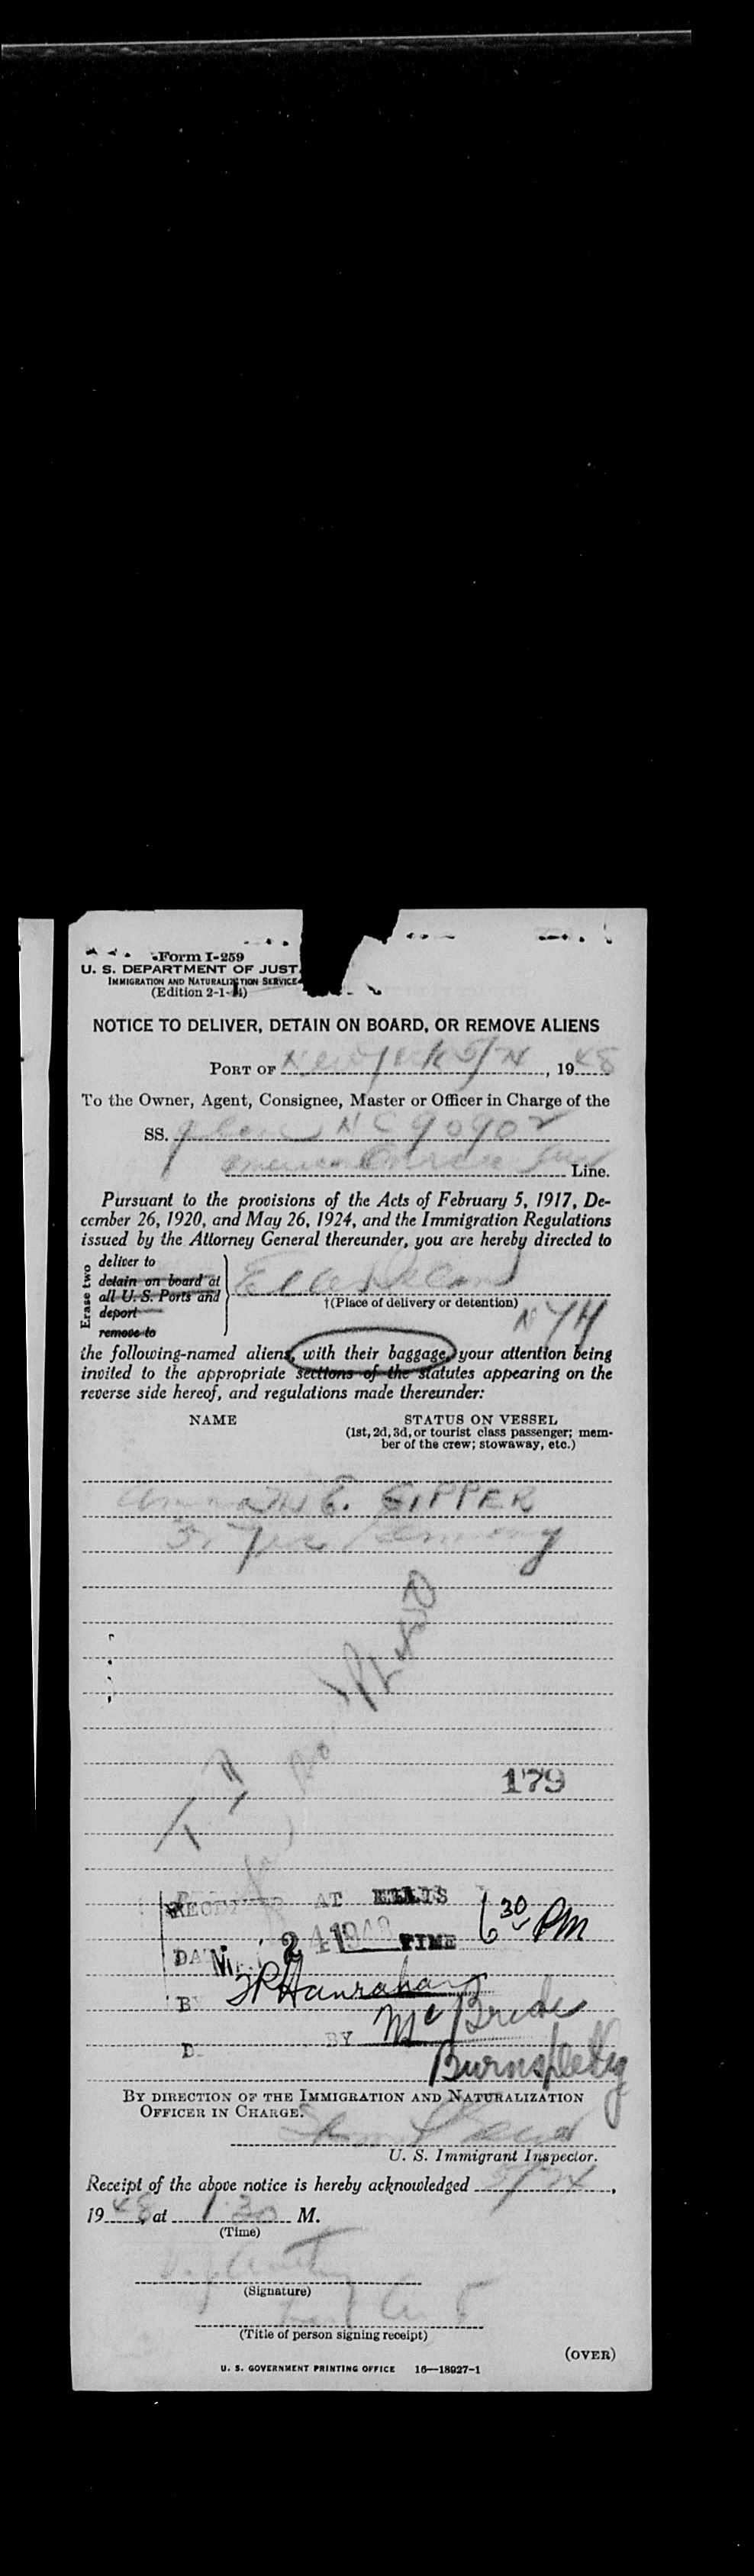 Form I-259
U. S. DEPARTMENT OF JUST
IMMIGRATION AND NATURALIZATION SERVICE
(Edition 2-1-)
NOTICE TO DELIVER, DETAIN ON BOARD, OR REMOVE ALIENS
PORT OF New York 5/24, 1948
To the Owner, Agent, Consignee, Master or Officer in Charge of the
SS. plane NC 90902
american Line.
Pursuant to the provisions of the Acts of February 5, 1917, De-
cember 26, 1920, and May 26, 1924, and the Immigration Regulations
issued by the Attorney General thereunder, you are hereby directed to
Erase two
deliver to
detain on board at
all U. S. Ports and
deport
remove to
Ellis Island
†(Place of delivery or detention)
NYH
the following-named aliens, with their baggage, your attention being
invited to the appropriate sections of the statutes appearing on the
reverse side hereof, and regulations made thereunder:
NAME STATUS ON VESSEL
(1st, 2d, 3d, or tourist class passenger; mem-
ber of the crew; stowaway, etc.)
Anna E. SIPPER
yrs Germany
179
RECEIVED AT ELLIS
DATE 24 1948 TIME 6 30 PM
BY Hanrahan
D BY McBride
Burns
BY DIRECTION OF THE IMMIGRATION AND NATURALIZATION
OFFICER IN CHARGE.
U. S. Immigrant Inspector.
Receipt of the above notice is hereby acknowledged 5/24,
1948, at 1:30 M.
(Time)
(Signature)
(Title of person signing receipt)
(OVER)
U. S. GOVERNMENT PRINTING OFFICE 16—18927-1